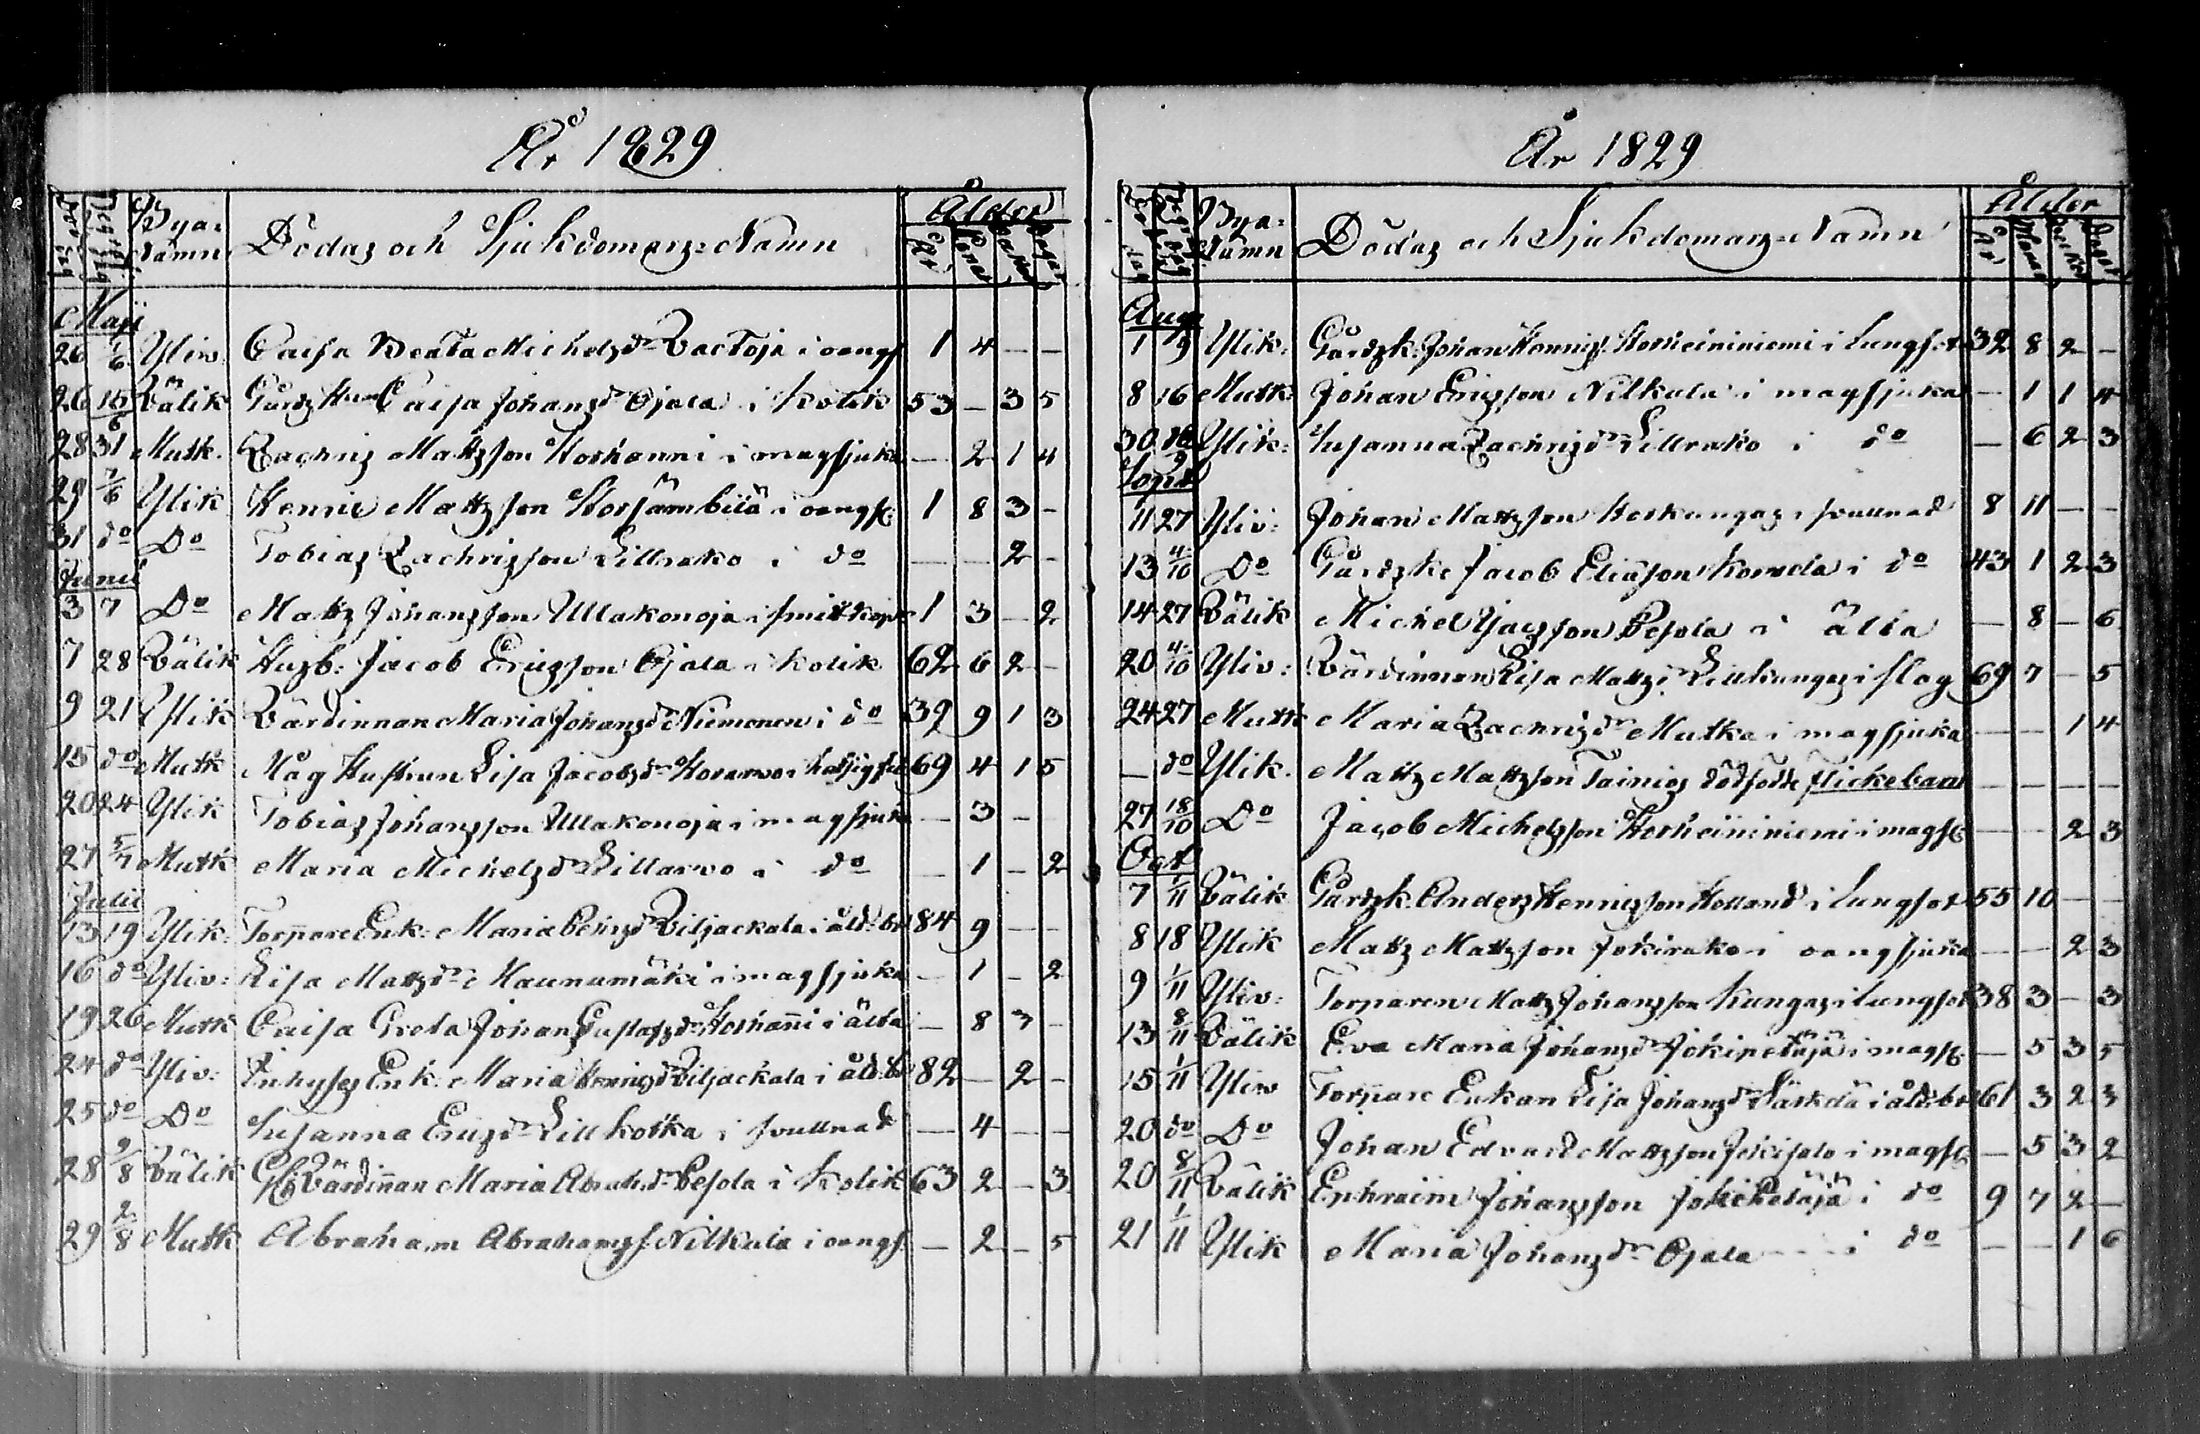 År 1829
Bya-Namn Dödas och Sjukdomars Namn Ålder
År
Maji
26 1/6 Yliv: Caisa Beata Michelsdr Vactoja i oangs 1 4 – –
26 15/6 Välik Gårdz Caisa Johansdr Ojala i Kolik 53 – 3 5
28 31 Mutk. Zachris Mattsson Koskanni i magsjuka – 2 1 4
29 7/6 Ylik Henric Mattsson i oangs: 1 8 3 –
31 do Do Tobias Zachrisson Lillrako i do – – 2 –
Junii
3 7 Do Matts Johansson Ullakonoja i smittkop 1 3 – 2
7 28 Välik Husb: Jacob Ericsson Ojala i Kolik 62 6 2 –
9 21 Ylik Värdinnan Maria Johansdr Niemonen i do 39 9 1 3
15 do Mutk Måg Hustrun Lisa Jacobsdr 69 4 1 5
20 24 Ylik Tobias Johansson Ullakonoja i magsjuka – 3 –
27 5/7 Mutk Maria Michelsdr Lillarvo i do – 1 – 2
Julii
13 19 Ylik: Torpare Enk: Maria Viljackala i åld: br 84 9 – –
16 do Yliv: Lisa Mattsdr Haunumäki i magsjuka – 1 – 2
19 26 Mutk Caisa Greta Johan Gustafsdr Koskanni i älta – 8 3 –
24 do Yliv: Inhyses Enk: Maria Henricsdr Viljackala i åld: br 82 – 2 –
25 do Do Susanna Ericsdr Lillkotka i svullnad – 4 – –
28 9/8 Välik Värdinnan Maria Abrah.dr Pesola i Kolik 63 2 – 3
29 2/8 Mutk Abraham Abrahamss. Nilkula i oangs. – 2 – 5
År 1829
Bya-Namn Dödas och Sjukdomars Namn Ålder
År
Aug
1 9 Ylik: Gårdzk: Johan Henricss. Korheininiemi i Lungsot 32 8 2 –
8 16 Mutk Johan Ericsson Nilkula i magsjuka – 1 1 4
30 Ylik: Susanna Zachrisdr Lillrako i do – 6 2 3
Sept
11 27 Yliv: Johan Mattsson Koskangas i svullnad 8 11 – –
13 4/10 Do Gårdzk: Jacob Eliasson i do 43 1 2 3
14 27 Välik Michel Pesola i älta – 8 – 6
20 4/10 Yliv: Värdinnan Lisa Mattsdr Lillkangas i slag 69 7 – 5
24 27 Mutk Maria Zachrisdr Mutka i magsjuka – – 1 4
– do Ylik. Matts Mattsson Tainios dödfödde flickebarn – – – –
27 18/10 Do Jacob Michelsson Korheininiemi i magsj – – 2 3
Oct
7 1/11 Välik Gårdzk. Anders Henricsson Holland i Lungsot 55 10 – –
8 18 Ylik Matts Mattsson Jokirako i oangsjuka – – 2 3
9 1/11 Yliv: Torparen Matts Johansson Kangas i Lungsot 38 3 – 3
13 8/11 Välik Eva Maria Johansdr Jokipetäjä i magsj – 5 3 5
15 1/11 Yliv Torpare Enkan Lisa Johansdr Särkelä i åld: br 61 3 2 3
20 do Do Johan Edvard Mattsson Jokisalo i magsj – 5 3 2
20 8/11 Välik Ephraim Johansson Jokipetäjä i do 9 7 2 –
21 1/11 Ylik Maria Johansdr Ojala i do – – 1 6